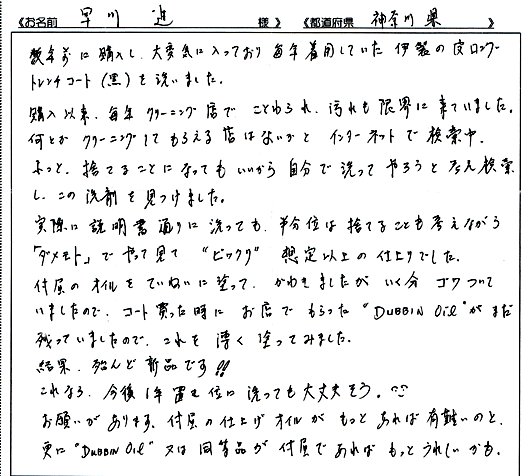 《お名前 早川 進 様》《都道府県 神奈川県》
数年前に購入し、大変気に入っており毎年着用していた伊製の皮ロング
トレンチコート(黒)を洗いました。
購入以来、毎年クリーニング店でことわられ、汚れも限界に来ていました。
何とかクリーニングしてもらえる店はないかとインターネットで検索中、
ふっと、捨てることになってもいいから自分で洗ってやろうと考え検索
し、この洗剤を見つけました。
実際に説明書通りに洗っても、半分位は捨てることも考えながら
「ダメモト」でやって見て "ビックリ" 想定以上の仕上りでした。
付属のオイルをていねいに塗って、かわきましたがいく分ゴワついて
いましたので、コート買った時にお店でもらった "DUBBIN Oil" がまだ
残っていましたので、これを薄く塗ってみました。
結果、殆んど新品です!!
これなら、今後1年置き位に洗っても大丈夫そう。
お願いがあります、付属の仕上げオイルがもっとあれば有難いのと、
更に "DUBBIN Oil" 又は同等品が付属であればもっとうれしいかも。